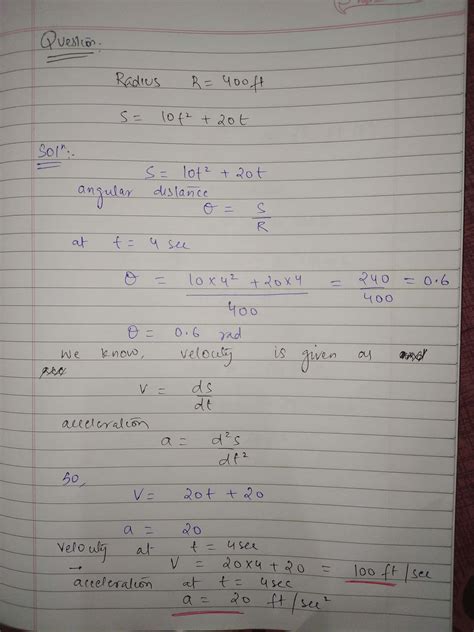 Question:
Radius R = 400ft
S = 10t² + 20t
Solⁿ:-
S = 10t² + 20t
angular distance
θ = S/R
at t = 4 sec
θ = (10×4² + 20×4)/400 = 240/400 = 0.6
θ = 0.6 rad
We know, velocity is given as
V = ds/dt
acceleration
a = d²s/dt²
So,
V = 20t + 20
a = 20
velocity at t = 4sec
→ V = 20×4 + 20 = 100 ft/sec
acceleration at t = 4sec
a = 20 ft/sec²